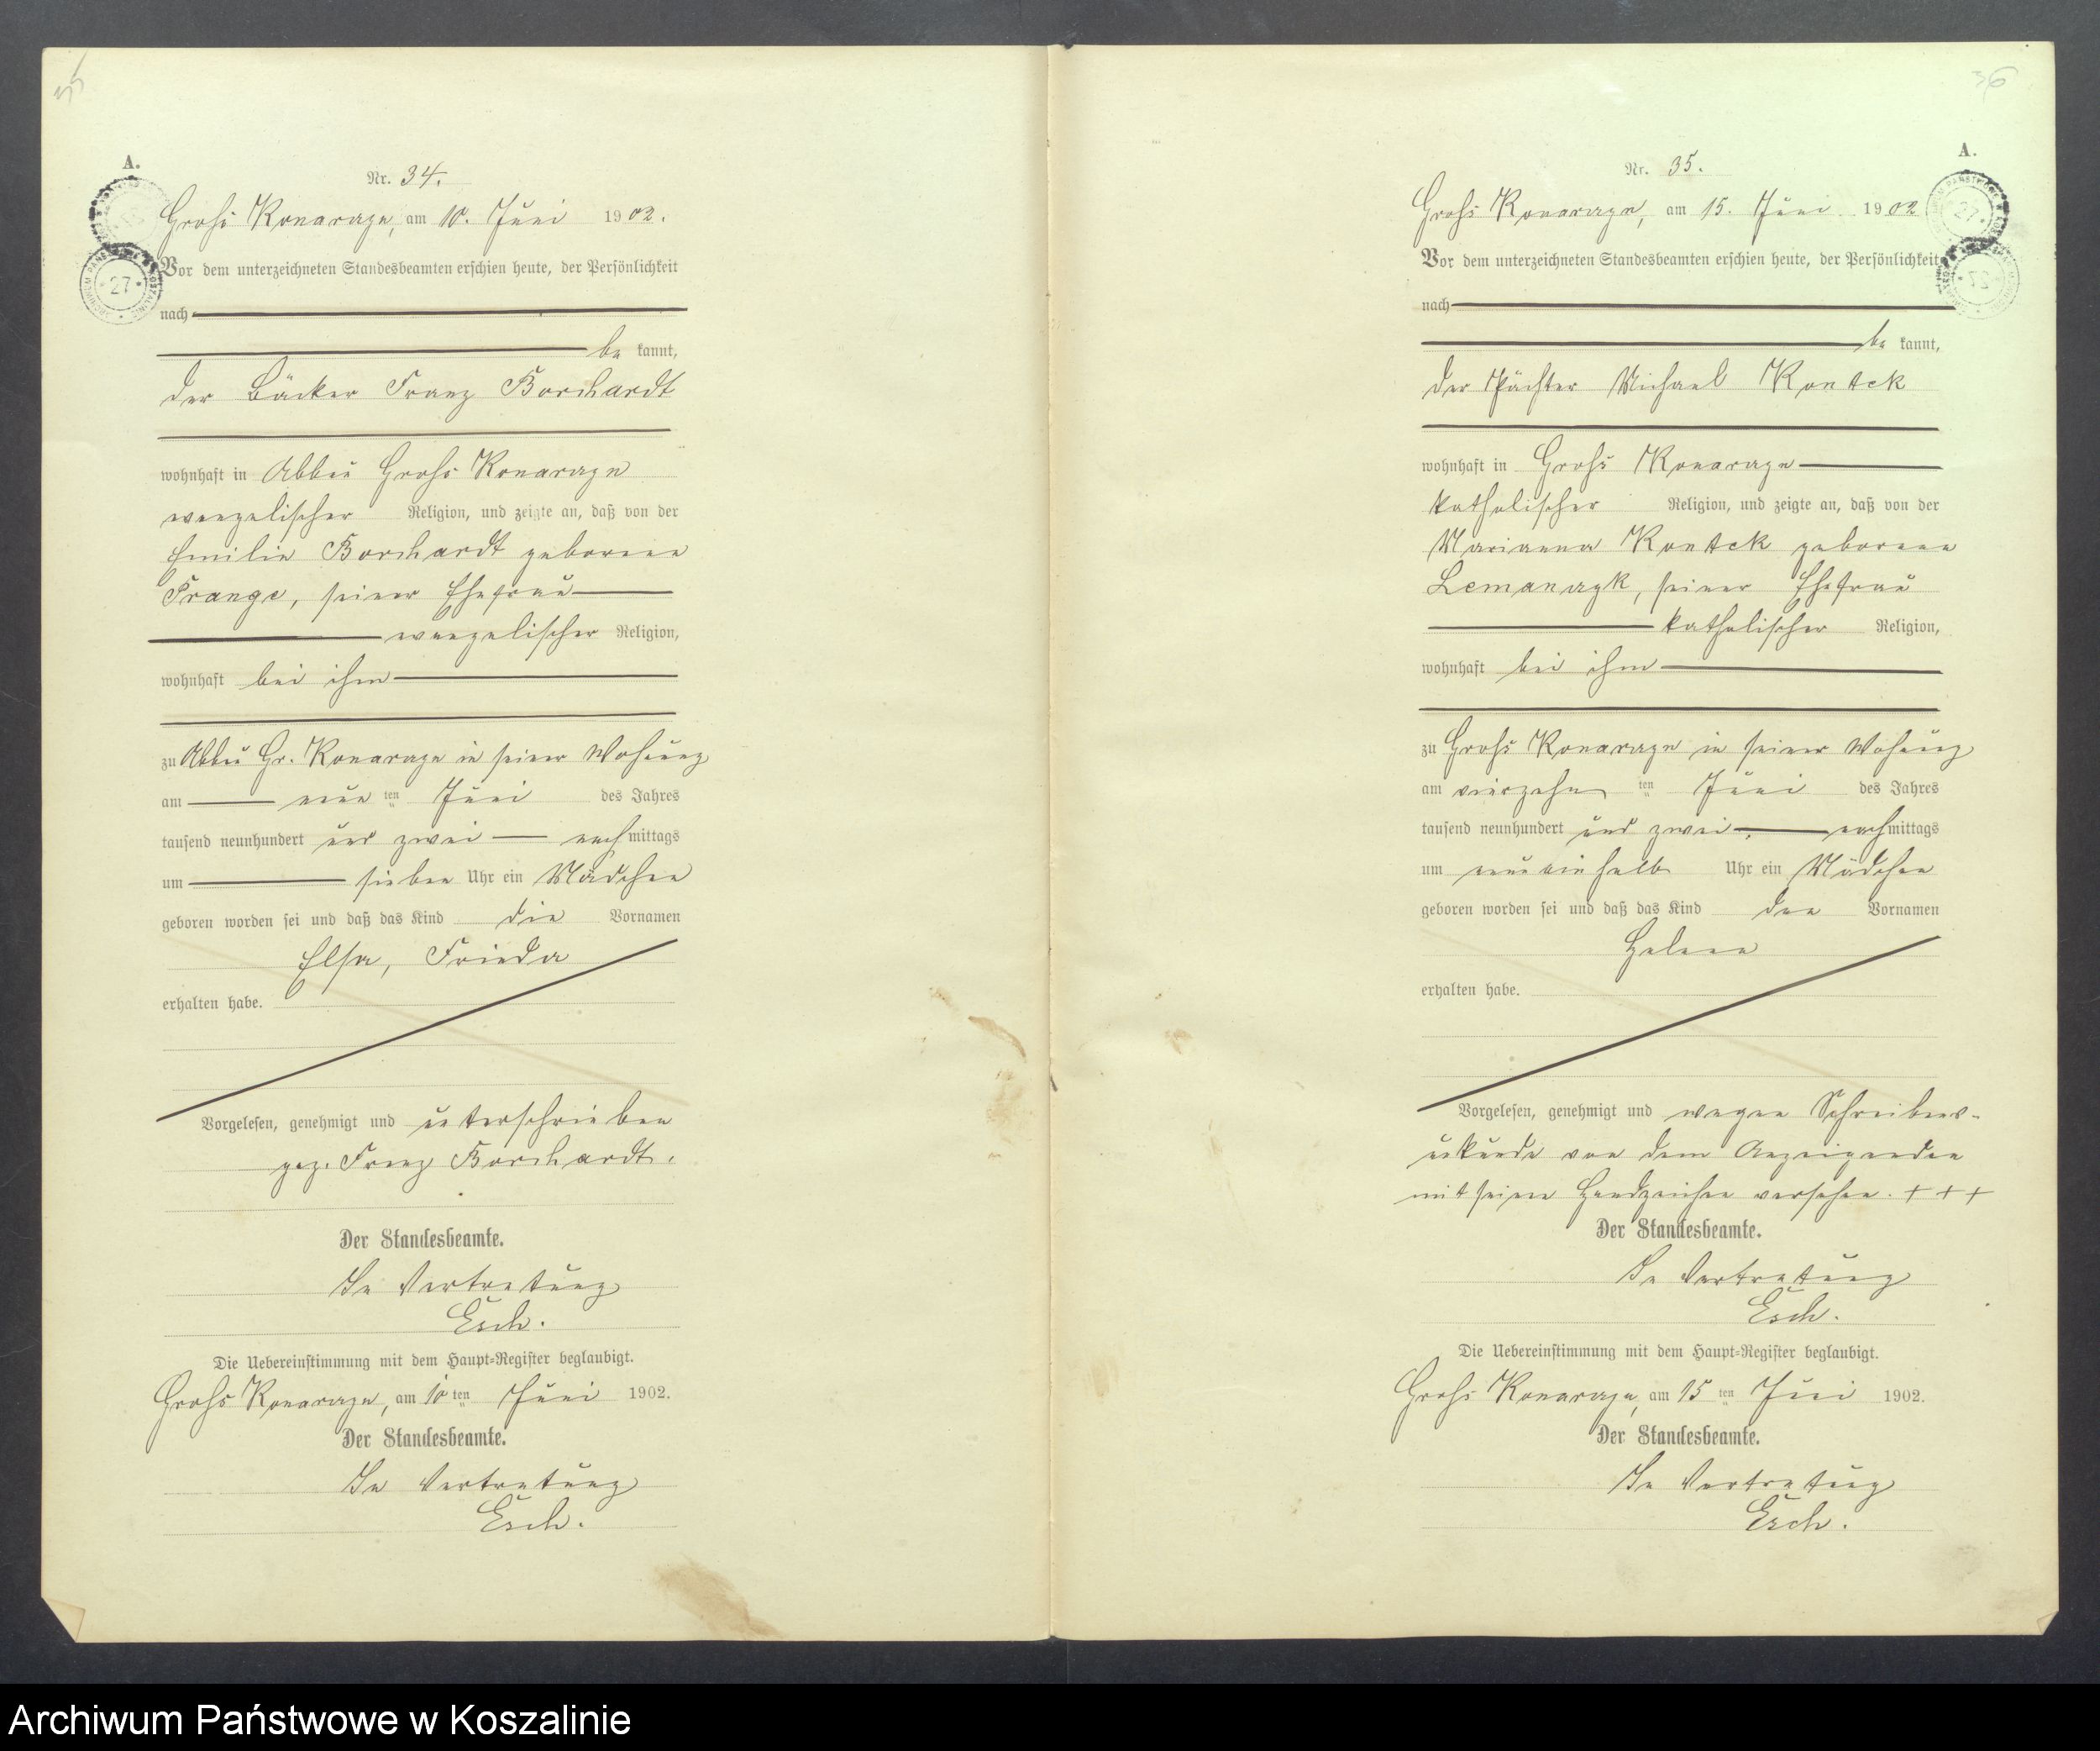 35
A.
Nr. 34.
Groß Konarczyn, am 10. Juni 1902.
Vor dem unterzeichneten Standesbeamten erschien heute, der Persönlichkeit
nach
be kannt,
der Bäcker Franz Borchardt
wohnhaft in Abbau Groß Konarczyn
evangelischer Religion, und zeigte an, daß von der
Emilie Borchardt geborene
Prange, seiner Ehefrau
evangelischer Religion,
wohnhaft bei ihm
zu Abbau Gr. Konarczyn in seiner Wohnung
am neun ten Juni des Jahres
tausend neunhundert und zwei nach mittags
um sieben Uhr ein Mädchen
geboren worden sei und daß das Kind die Vornamen
Elsa, Frieda
erhalten habe.
Vorgelesen, genehmigt und unterschrieben
gez. Franz Borchardt.
Der Standesbeamte.
In Vertretung
Esch.
Die Uebereinstimmung mit dem Haupt-Register beglaubigt.
Groß Konarczyn, am 10 ten Juni 1902.
Der Standesbeamte.
In Vertretung
Esch.
36
A.
Nr. 35.
Groß Konarczyn, am 15. Juni 1902
Vor dem unterzeichneten Standesbeamten erschien heute, der Persönlichkeit
nach
be kannt,
der Pächter Michael
wohnhaft in Groß Konarczyn
katholischer Religion, und zeigte an, daß von der
Marianna geborene
Lemanczyk, seiner Ehefrau
katholischer Religion,
wohnhaft bei ihm
zu Groß Konarczyn in seiner Wohnung
am vierzehn ten Juni des Jahres
tausend neunhundert und zwei nachmittags
um neuneinhalb Uhr ein Mädchen
geboren worden sei und daß das Kind den Vornamen
Helene
erhalten habe.
Vorgelesen, genehmigt und wegen Schreibens-
unkunde von dem Anzeigenden
mit seinen Handzeichen versehen. + + +
Der Standesbeamte.
In Vertretung
Esch.
Die Uebereinstimmung mit dem Haupt-Register beglaubigt.
Groß Konarczyn, am 15 ten Juni 1902.
Der Standesbeamte.
In Vertretung
Esch.
Archiwum Państwowe w Koszalinie